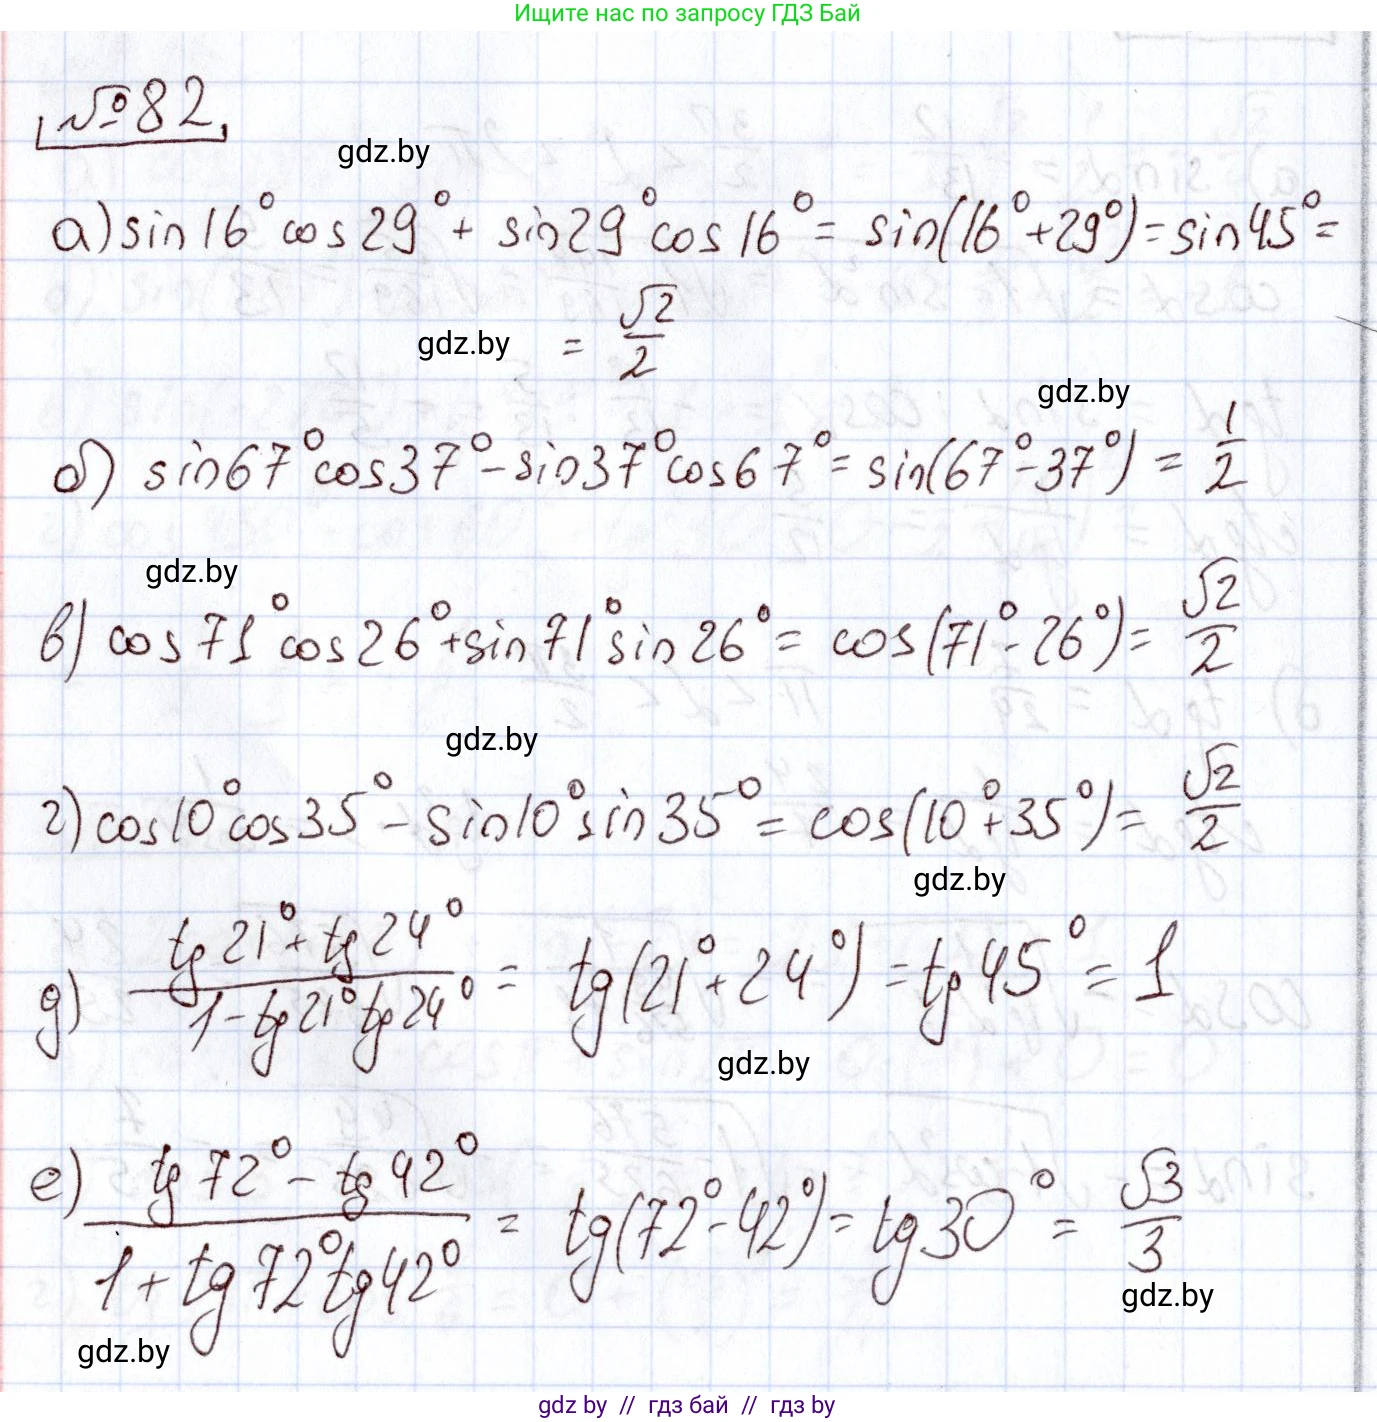 Ищите нас по запросу ГДЗ Бай
№82
gdz.by
а) sin16°cos29° + sin29°cos16° = sin(16°+29°) = sin45° =
gdz.by = √2/2
gdz.by
б) sin67°cos37° - sin37°cos67° = sin(67°-37°) = 1/2
gdz.by
в) cos71°cos26° + sin71°sin26° = cos(71°-26°) = √2/2
gdz.by
г) cos10°cos35° - sin10°sin35° = cos(10°+35°) = √2/2
gdz.by
д) (tg21° + tg24°)/(1 - tg21°tg24°) = tg(21°+24°) = tg45° = 1
gdz.by
е) (tg72° - tg42°)/(1 + tg72°tg42°) = tg(72°-42°) = tg30° = √3/3
gdz.by
gdz.by
gdz by // гдз бай // гдз by